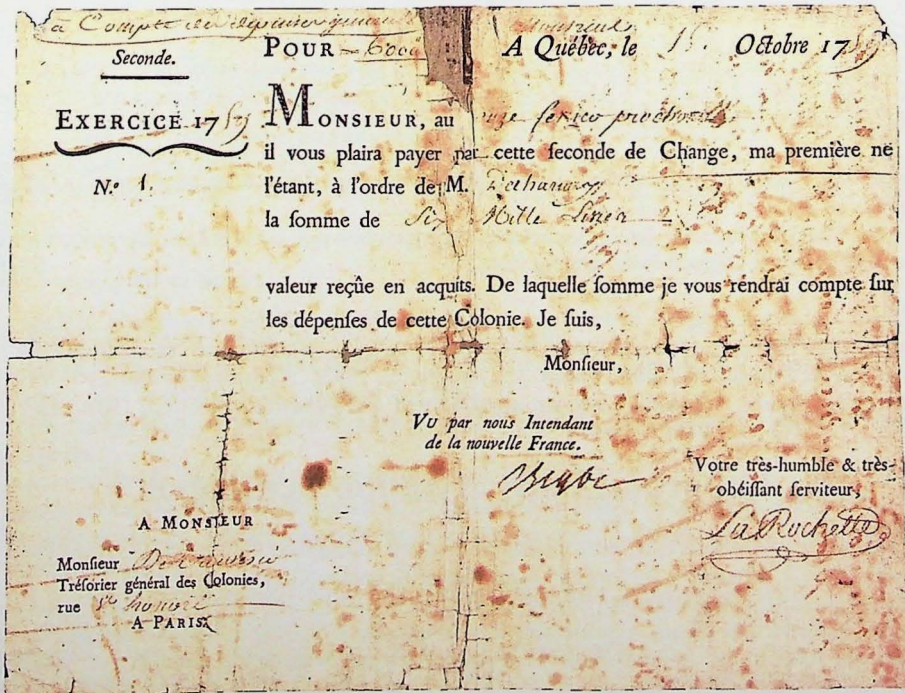 à Compte des dépenses
Seconde.
POUR 6000
A Québec, le 15 Octobre 17
EXERCICE 17
MONSIEUR, au
il vous plaira payer par cette ſeconde de Change, ma première ne
N.º 1.
l'étant, à l'ordre de M.
la ſomme de Six Mille
valeur reçûe en acquits. De laquelle ſomme je vous rendrai compte ſur
les dépenſes de cette Colonie. Je ſuis,
Monſieur,
VU par nous Intendant
de la nouvelle France.
Bigot
Votre très-humble & très-
obéiſſant ſerviteur,
La Rochette
A MONSIEUR
Monſieur
Tréſorier général des Colonies,
rue St honoré
A PARIS.